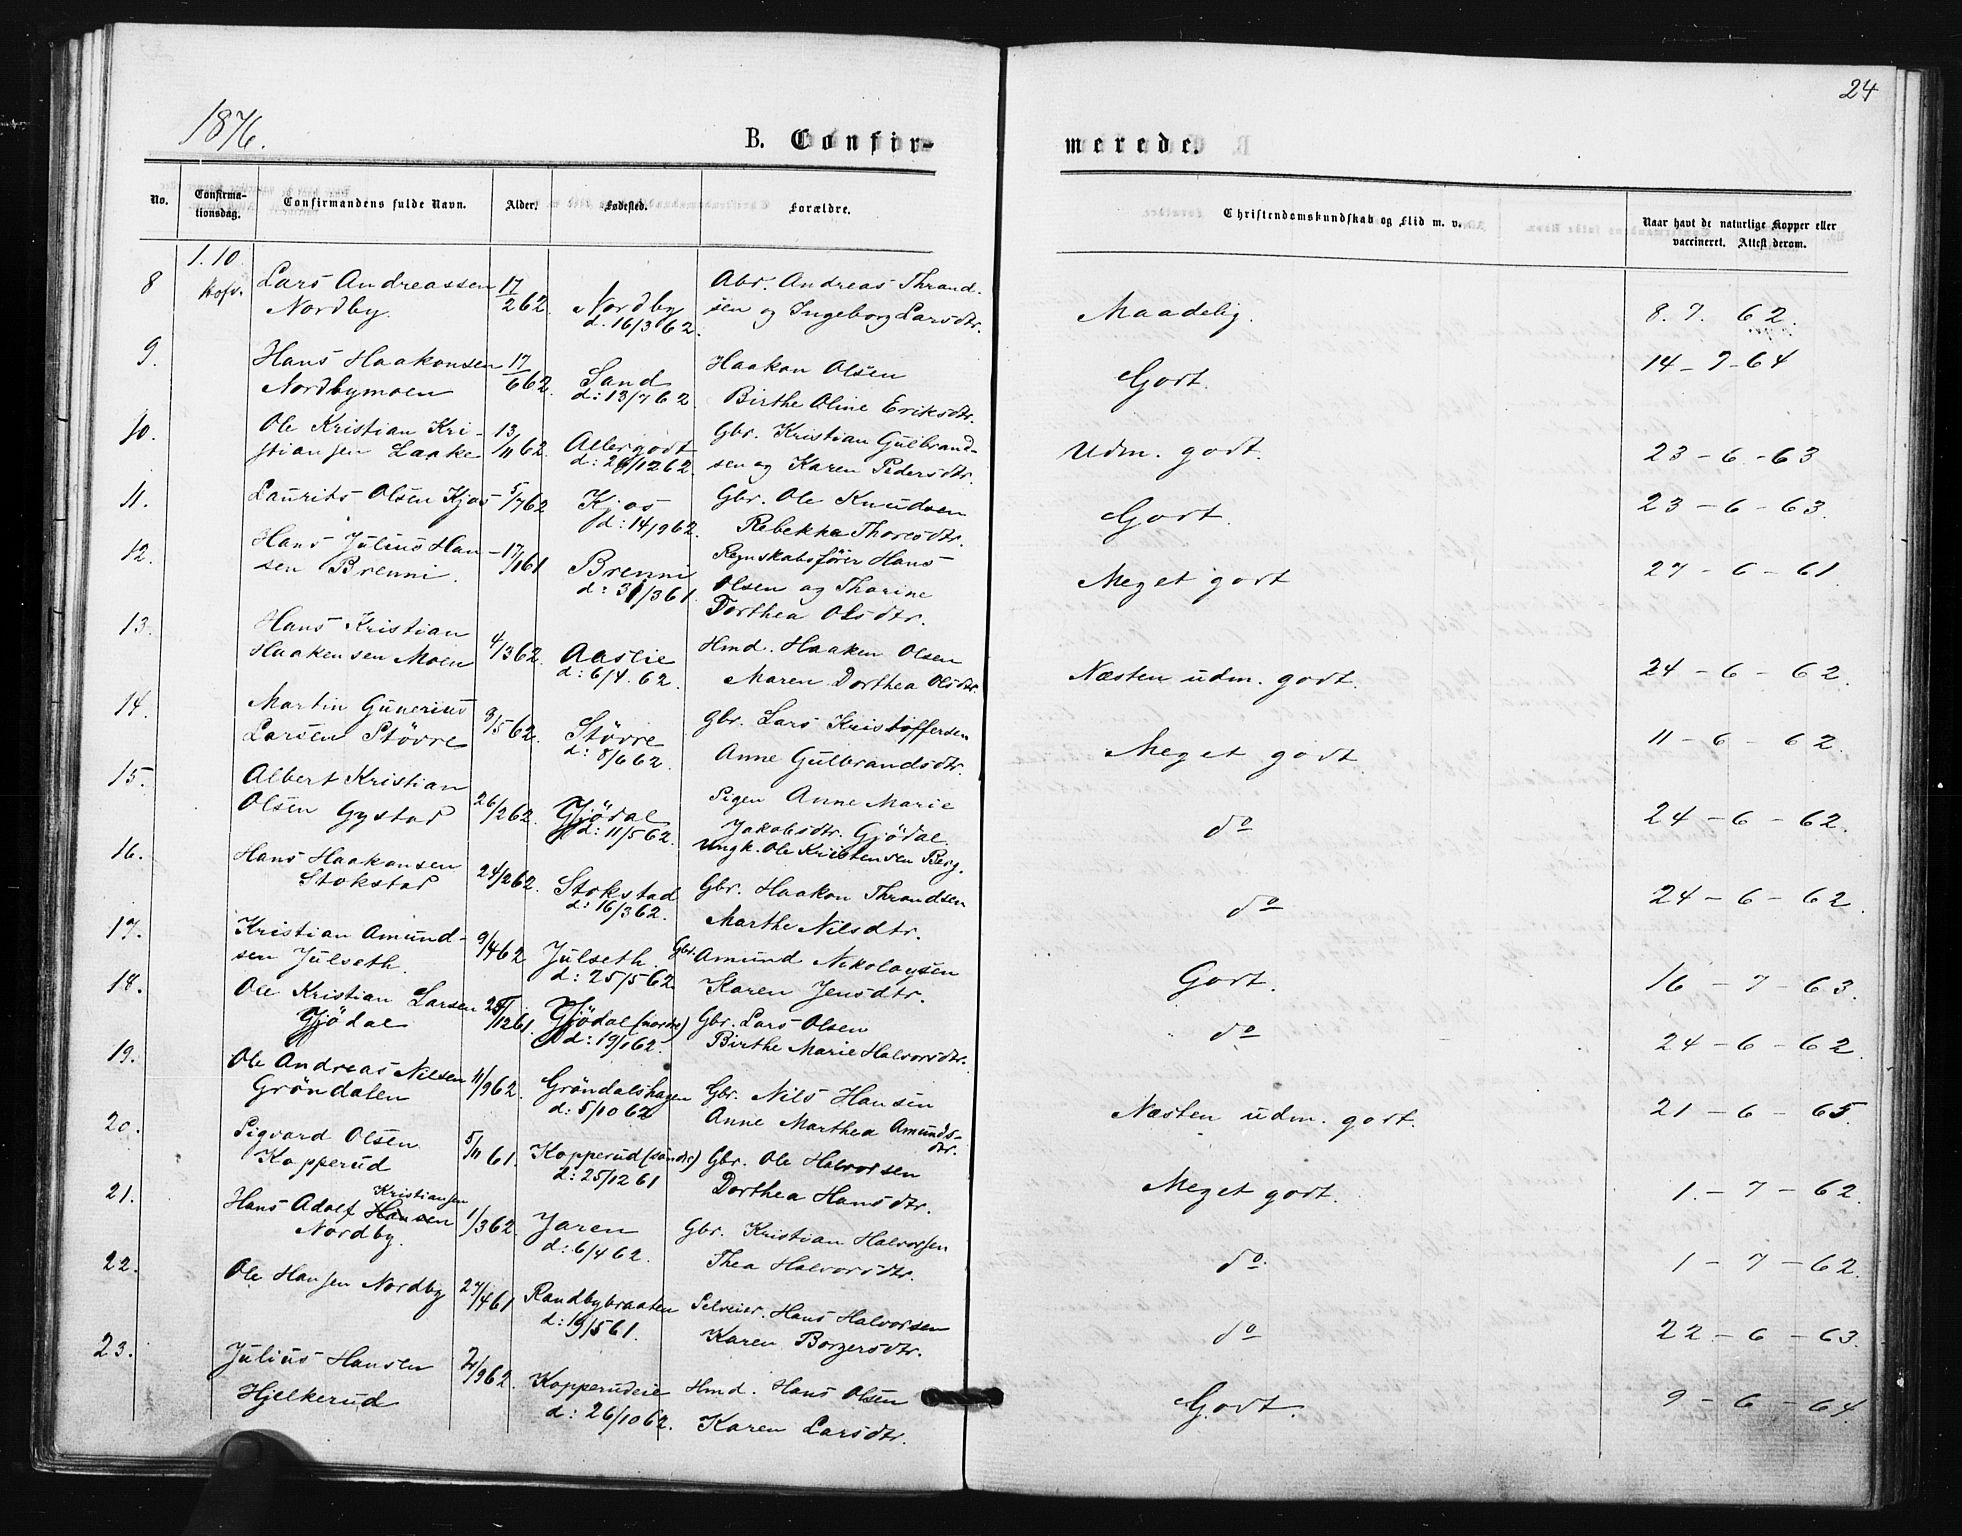 24
1876.
B. Confirmerede.
No. Confirmationsdag. Confirmandens fulde Navn. Alder. Fødested. Forældre. Christendomskundskab og Flid m. v. Naar havt de naturlige Kopper eller vaccineret. Attest derom.
1.10.
8 Lars Andreassen 17/2 62 Nordby Abr. Andreas Thrand-
Nordby. d. 16/3 62. sen og Ingeborg Larsdtr. Maadelig. 8. 7. 62.
9. Hans Haakonsen 17/6 62. Sand Haakon Olsen Godt. 14-7-64
Nordbymoen d: 13/7 62 Birthe Oline Eriksdtr.
10. Ole Kristian Kri- 13/11 62. Allergodt Gbr. Kristian Gulbrand- Udm. godt. 23-6-63
stiansen Laake d: 26/12 62 sen og Karen Pedersdtr.
11. Laurits Olsen Kjos 5/7 62 Kjos Gbr. Ole Knudsen Godt. 23-6-63.
d: 14/9 62. Rebekka Thoresdtr.
12. Hans Julius Han- 17/1 61 Brenni Regnskabsfører Hans Meget godt 27-6-61.
sen Brenni. d: 31/3 61. Olsen og Thorine
Dorthea Olsdtr.
13. Hans Kristian 4/3 62. Aaslie Hmd. Haaken Olsen Næsten udm. godt. 24-6-62.
Haakensen Moen d: 6/4. 62. Maren Dorthea Olsdtr.
14. Martin Gunerius 8/5 62. Støvre Gbr. Lars Kristoffersen Meget godt. 11-6-62.
Larsen Støvre d: 8/6 62. Anne Gulbrandsdtr.
15. Albert Kristian 26/2 62. Gjödal Pigen Anne Marie do 24-6-62.
Olsen Gystad d: 11/5 62. Jakobsdtr. Gjödal.
Ungk. Ole Kristensen Berg.
16. Hans Haakonsen 24/2 62. Stokstad Gbr. Haakon Thrandsen do 24-6-62.
Stokstad d: 16/3 62. Marthe Nilsdtr.
17. Kristian Amund- 9/4 62 Julseth. Gbr. Amund Nikolaysen Godt. 16-7-63.
sen Julseth. d: 25/5 62. Karen Jensdtr.
18. Ole Kristian Larsen 25/12 61. Gjödal (nordr) Gbr. Lars Olsen do 24-6-62.
Gjödal d: 19/1 62. Birthe Marie Halvorsdtr.
19. Ole Andreas Nilsen 11/9 62. Gröndalshagen Gbr. Nils Hansen Næsten udm. godt. 21-6-65
Gröndalen d: 5/10 62 Anne Marthea Amunds-
dtr.
20. Sigvard Olsen 5/11 61. Kopperud (söndr) Gbr. Ole Halvorsen Meget godt. 1.-7-62.
Kopperud d: 25/12 61 Dorthea Hansdtr.
21. Hans Adolf Hansen Kristiansen 1/3 62. Jaren Gbr. Kristian Halvorsen do 1-7-62.
Nordby. d: 6/4 62. Thea Halvorsdtr.
22. Ole Hansen Nordby 27/4 61 Randbybraaten Selveier. Hans Halvorsen do 22-6-63.
d: 19/5 61. Karen Borgersdtr.
23. Julius Hansen 2/9 62. Kopperudeie Hmd. Hans Olsen Godt. 9-6-64.
Hjelkerud d: 26/10 62. Karen Larsdtr.